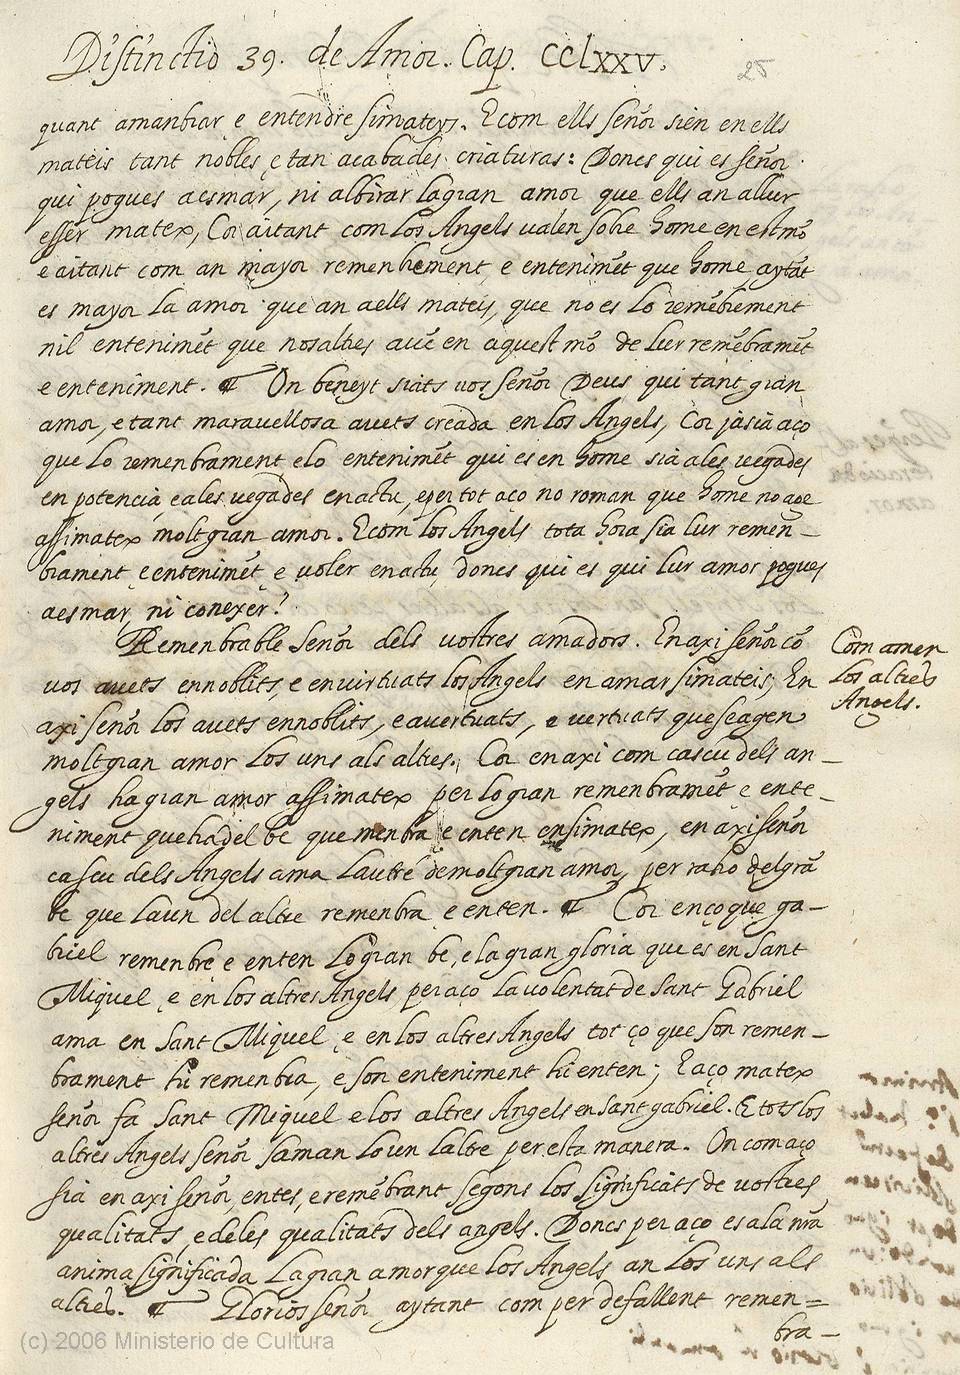 Distinctio 39. de Amor. Cap. CClxxv.
25
quant amanbrar e entendre simateys. E com ells señor sien en ells
mateis tant nobles e tan acabades criaturas: Doncs qui es señor
qui pogues aesmar, ni albirar la gran amor que ells an a llur
esser matex, Cor aitant com los Angels valen sobre home en est mō
e aitant com an mayor remenbrement, e entenimēt que home aytāt
es mayor la amor que an a ells mateis, que no es lo remēbrement
nil entenimēt que nosaltres avē en aquest mō de lur remēbramēt
e enteniment. ¶ On beneyt siats vos señor Deus qui tant gran
amor, e tant maravellosa avets creada en los Angels, Cor jàsia aço
que lo remenbrament e lo entenimēt qui es en home sia a les vegades
en potencia, e a les vegades en actu, e per tot aço no roman que home no age
assimatex molt gran amor. E com los Angels tota hora sia lur remen-
brament e entenimēt, e voler en actu, doncs qui es qui lur amor pogues
aesmar, ni conexer?
Remenbrable señor dels vostres amadors. En axi señor cō
vos avets ennoblits, e envirtuats los Angels en amar simateis, En
axi señor los avets ennoblits, e avertuats, e vertuats que se agen
molt gran amor los uns als altres. Cor en axi com cascu dels an-
gels ha gran amor assimatex per lo gran remenbramēt e ente-
niment que ha del be que menbra e enten en simatex, en axi señor
cascu dels Angels ama lautre de molt gran amor, per raho del grā
be que la un del altre remenbra e enten. ¶ Cor en ço que ga-
briel remenbre e enten lo gran be, e la gran gloria que es en Sant
Miquel, e en los altres Angels, per aço la volentat de Sant Gabriel
ama en Sant Miquel, e en los altres Angels tot ço que son remen-
brament hi remenbra, e son enteniment hi enten; E aço matex
señor fa Sant Miquel e los altres Angels en Sant gabriel. E tots los
altres Angels señor saman lo un laltre per esta manera. On com aço
sia en axi señor, entes, e remēbrant segons los significats de vostres
qualitats, e de les qualitats dels angels. Doncs per aço es a la mīa
anima significada la gran amor que los Angels an los uns als
altres. ¶ Glorios señor, aytant com per defallent remen=
bra-
Com amen
los altres
Angels.
(c) 2006 Ministerio de Cultura